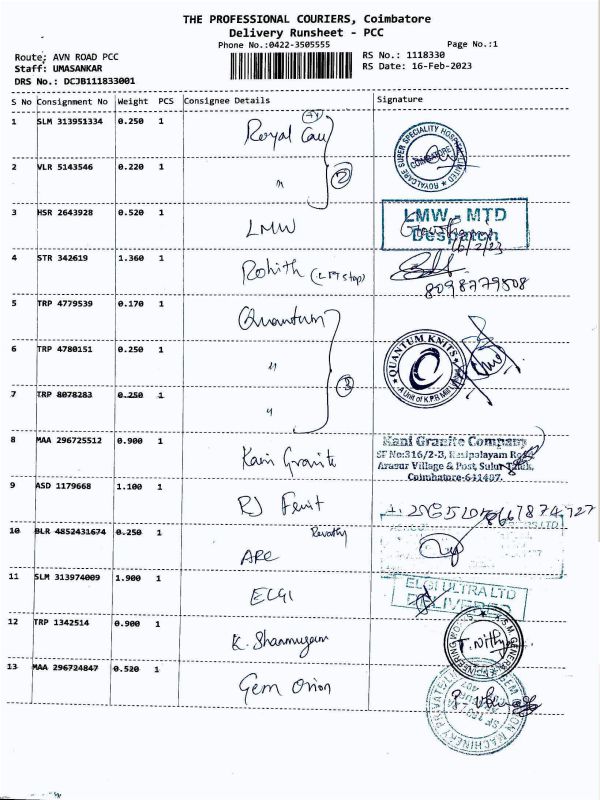 THE PROFESSIONAL COURIERS, Coimbatore
Delivery Runsheet - PCC
Phone No.:0422-3505555 Page No.:1
Route: AVN ROAD PCC RS No.: 1118330
Staff: UMASANKAR RS Date: 16-Feb-2023
DRS No.: DCJB111833001
S No Consignment No Weight PCS Consignee Details Signature
1 SLM 313951334 0.250 1 Royal Care
ROYALCARE SUPER SPECIALITY HOSPITAL LIMITED
COIMBATORE
2 VLR 5143546 0.220 1 " 2
3 HSR 2643928 0.520 1 LMW
LMW - MTD
Despatch
16/2/23
4 STR 342619 1.360 1 Rohith (LMW stop)
8098779508
5 TRP 4779539 0.170 1 Quantum
6 TRP 4780151 0.250 1 "
QUANTUM KNITS
A Unit of K.P.R Mill
7 TRP 8078283 0.250 1 " 3
8 MAA 296725512 0.900 1 Kani Granite
Kani Granite Company
SF No:316/2-B, Rasipalayam Road,
Arasur Village & Post, Sulur Taluk,
Coimbatore-641407.
9 ASD 1179668 1.100 1 RJ
10 BLR 4852431674 0.250 1 Revathy
ARC
11 SLM 313974009 1.900 1 ELGI
ELGI ULTRA LTD
DELIVERED
12 TRP 1342514 0.900 1 K. Shanmugam
T. Nithya
13 MAA 296724847 0.520 1 Gem Orion
GEM ORION MACHINERY PRIVATE